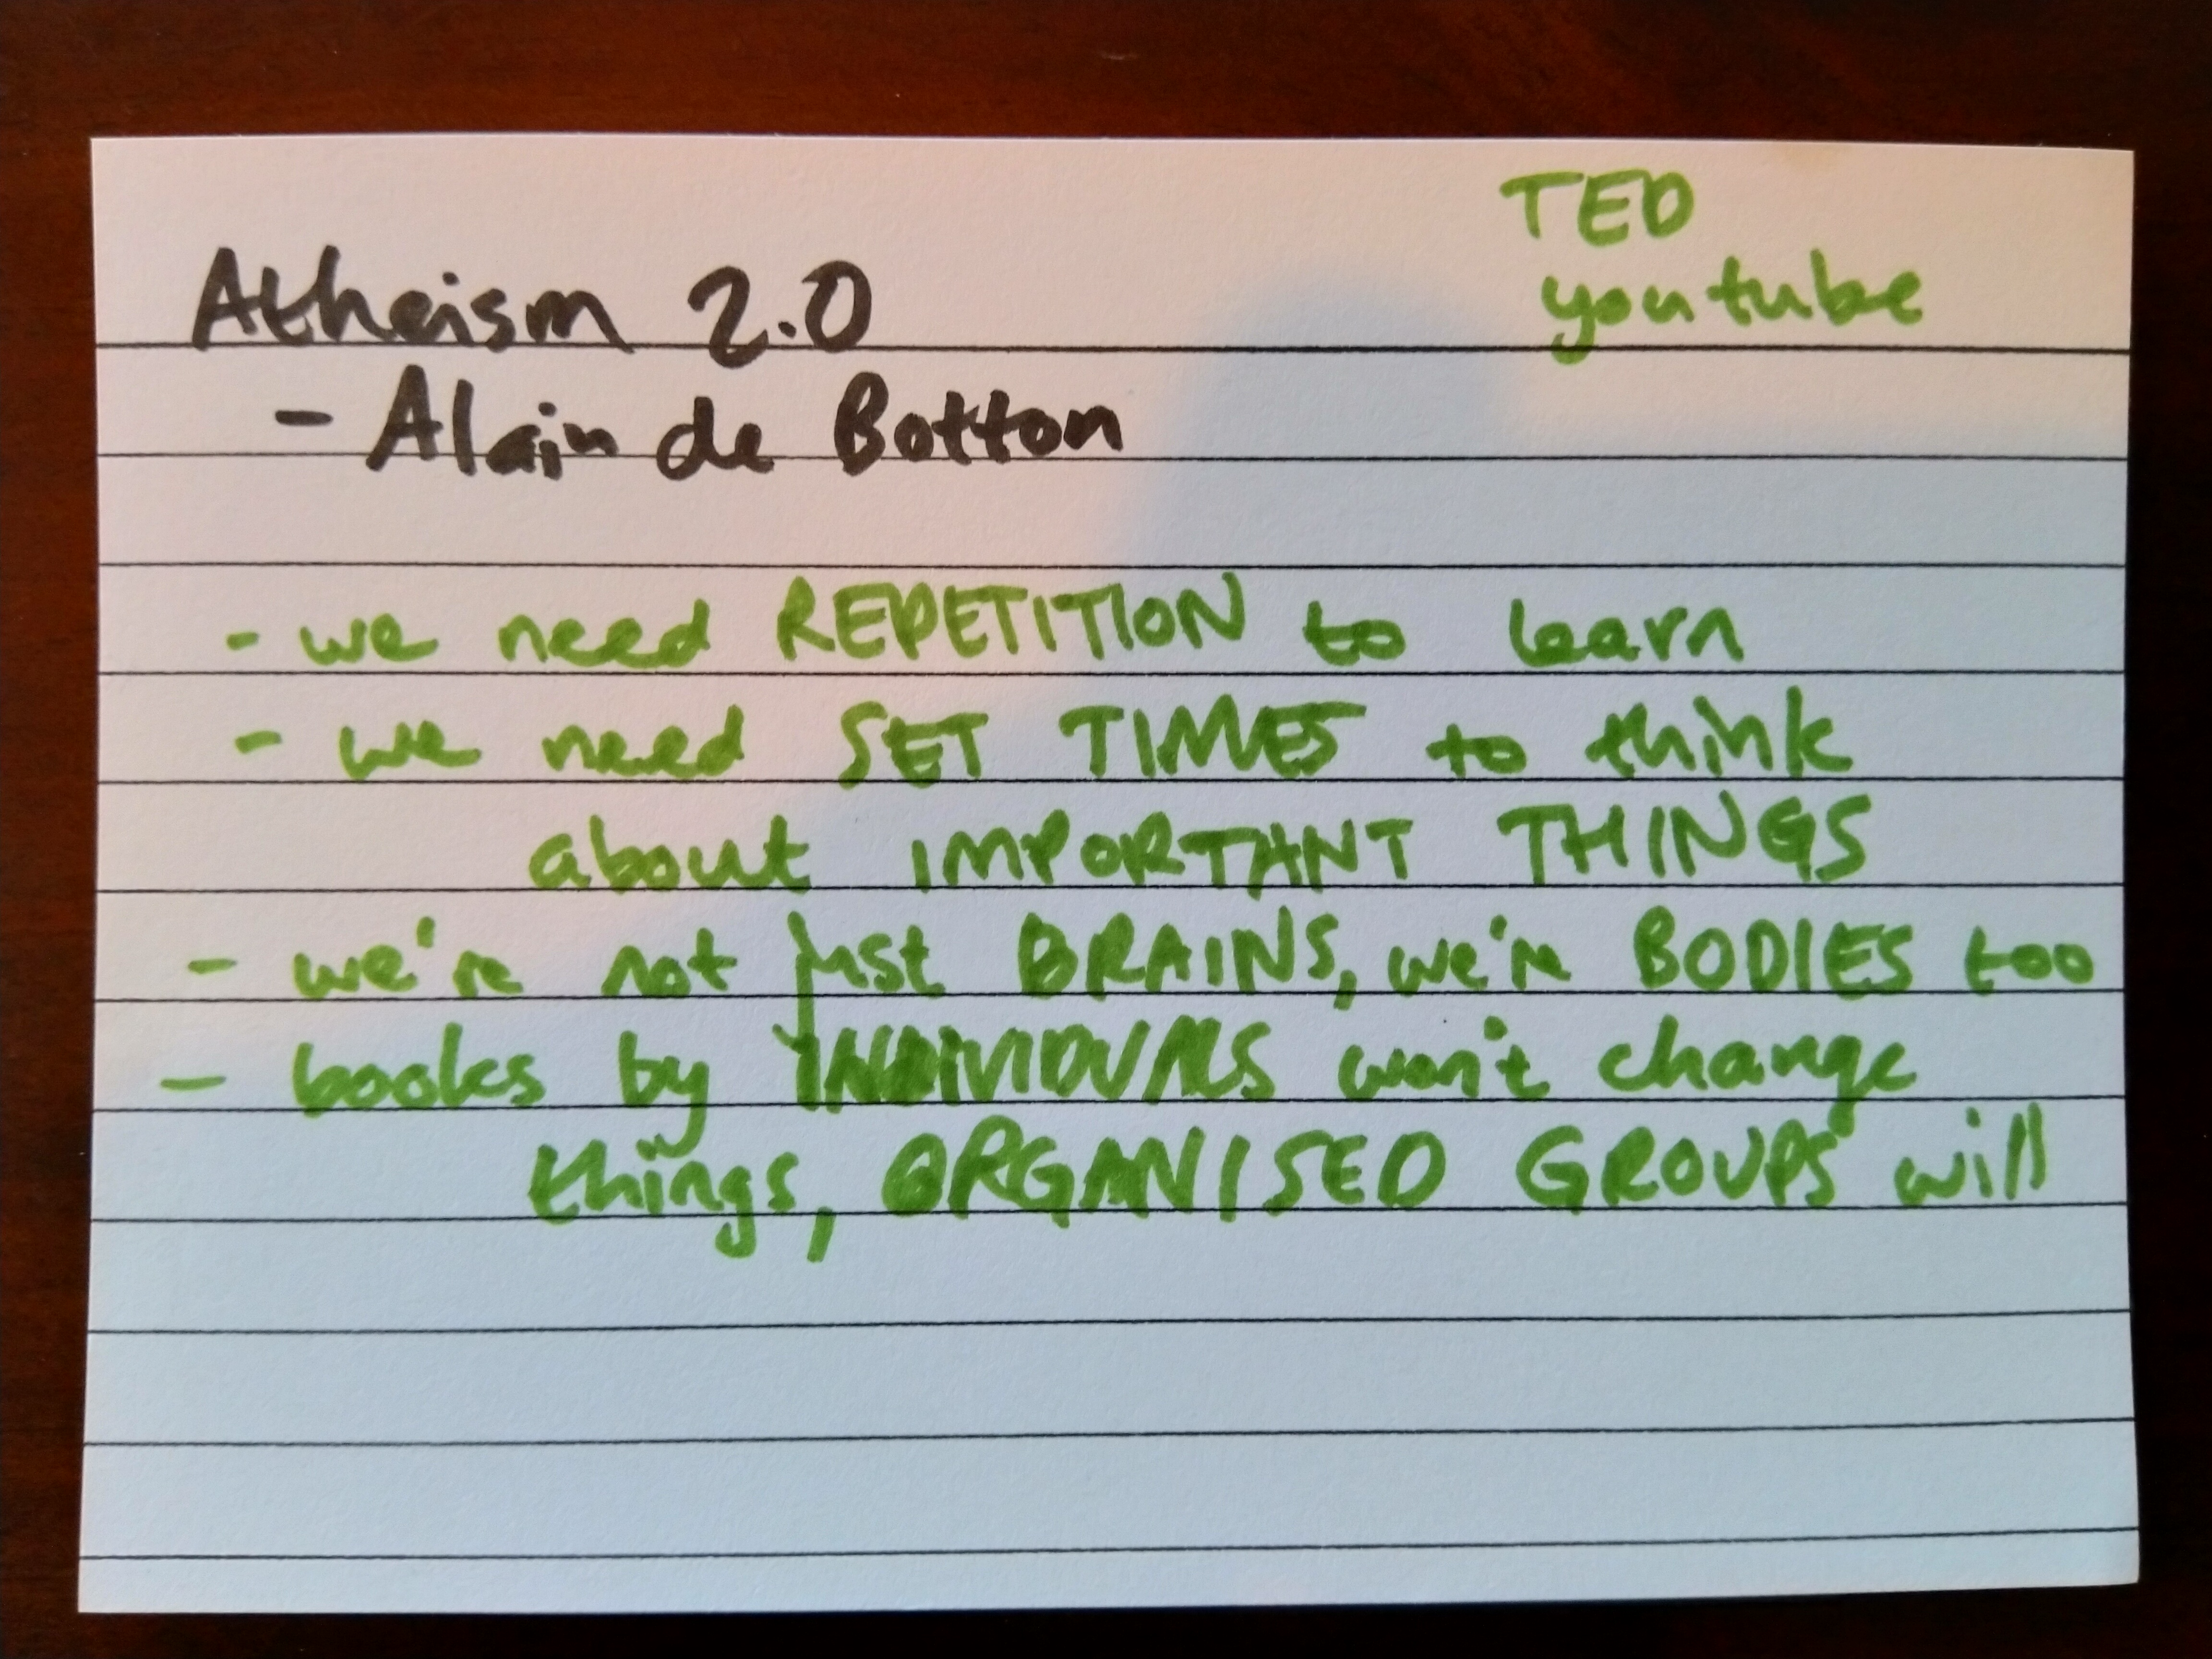 TED
youtube
Atheism 2.0
- Alain de Botton
- we need REPETITION to learn
- we need SET TIMES to think
about IMPORTANT THINGS
- we're not just BRAINS, we're BODIES too
- books by INDIVIDUALS won't change
things, ORGANISED GROUPS will